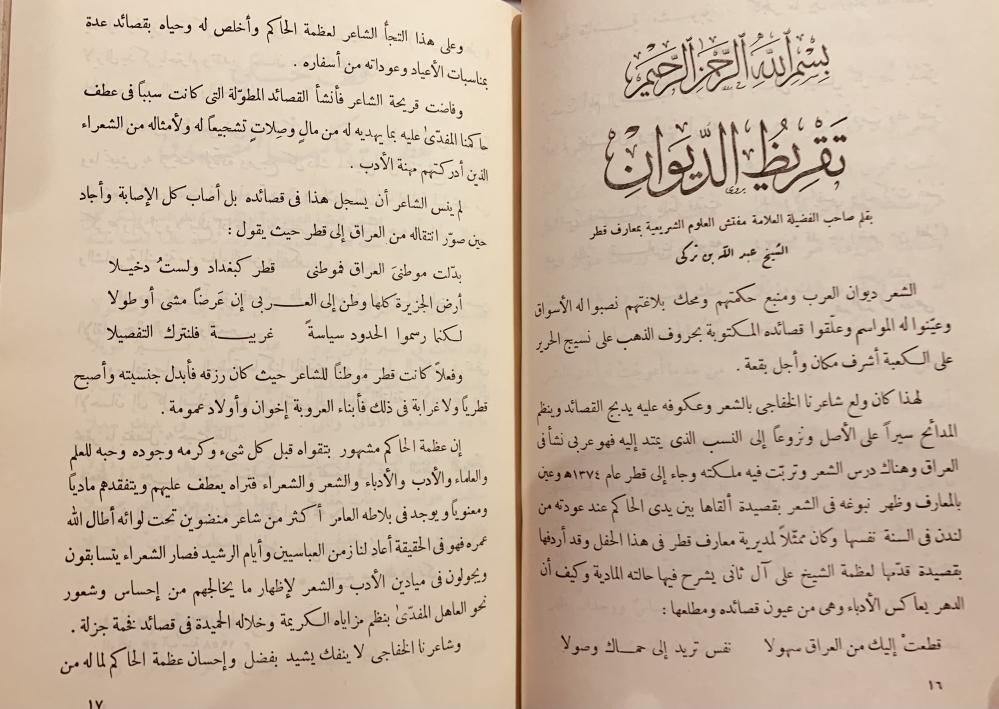 بسم الله الرحمن الرحيم
تقريظ الديوان
بقلم صاحب الفضيلة العلامة مفتش العلوم الشرعية بمعارف قطر
الشيخ عبد الله بن تركى
الشعر ديوان العرب ومنبع حكمتهم ومحك بلاغتهم نصبوا له الأسواق
وعيّنوا له المواسم وعلّقوا قصائده المكتوبة بحروف الذهب على نسيج الحرير
على الكعبة أشرف مكان وأجل بقعة .
لهذا كان ولع شاعرنا الخفاجى بالشعر وعكوفه عليه يدبج القصائد وينظم
المدائح سيراً على الأصل ونزوعاً إلى النسب الذى يمتد إليه فهو عربى نشأ فى
العراق وهناك درس الشعر وتربّت فيه ملكته وجاء إلى قطر عام ١٣٧٤ه وعين
بالمعارف وظهر نبوغه فى الشعر بقصيدة ألقاها بين يدى الحاكم عند عودته من
لندن فى السنة نفسها وكان ممثّلاً لمديرية معارف قطر فى هذا الحفل وقد أردفها
بقصيدة قدّمها لعظمة الشيخ على آل ثانى يشرح فيها حالته المادية وكيف أن
الدهر يعاكس الأدباء وهى من عيون قصائده ومطلعها :
قطعتْ إليك من العراق سهولا نفس تريد إلى حمـاك وصولا
١٦
وعلى هذا التجأ الشاعر لعظمة الحاكم وأخلص له وحياه بقصائد عدة
بمناسبات الأعياد وعوداته من أسفاره .
وفاضت قريحة الشاعر فأنشأ القصائد المطوّلة التى كانت سبباً فى عطف
حاكمنا المفدّىٰ عليه بما يهديه له من مالٍ وصِلاتٍ تشجيعاً له ولأمثاله من الشعراء
الذين أدركتهم مهنة الأدب .
لم ينس الشاعر أن يسجل هذا فى قصائده بل أصاب كل الإصابة وأجاد
حين صوّر انتقاله من العراق إلى قطر حيث يقول :
بدّلت موطنىَ العراق فموطنى قطر كبغداد ولستُ دخيـلا
أرض الجزيرة كلها وطن إلى العـــربى إن عَرضاً مشى أو طولا
لكنما رسموا الحدود سياسةً غريبـــة فلنترك التفصيلا
وفعلاً كانت قطر موطناً للشاعر حيث كان رزقه فأبدل جنسيته وأصبح
قطرياً ولا غرابة فى ذلك فأبناء العروبة إخوان وأولاد عمومة .
إن عظمة الحاكم مشهور بتقواه قبل كل شىء وكرمه وجوده وحبه للعلم
والعلماء والأدب والأدباء والشعر والشعراء فتراه يعطف عليهم ويتفقدهم مادياً
ومعنوياً ويوجد فى بلاطه العامر أكثر من شاعر منضوين تحت لوائه أطال الله
عمره فهو فى الحقيقة أعاد لنا زمن العباسيين وأيام الرشيد فصار الشعراء يتسابقون
ويجولون فى ميادين الأدب والشعر لإظهار ما يخالجهم من إحساس وشعور
نحو العاهل المفدّىٰ بنظم مزاياه الكريمة وخلاله الحميدة فى قصائد فخمة جزلة .
وشاعرنا الخفاجى لا ينفك يشيد بفضل وإحسان عظمة الحاكم لما له من
١٧